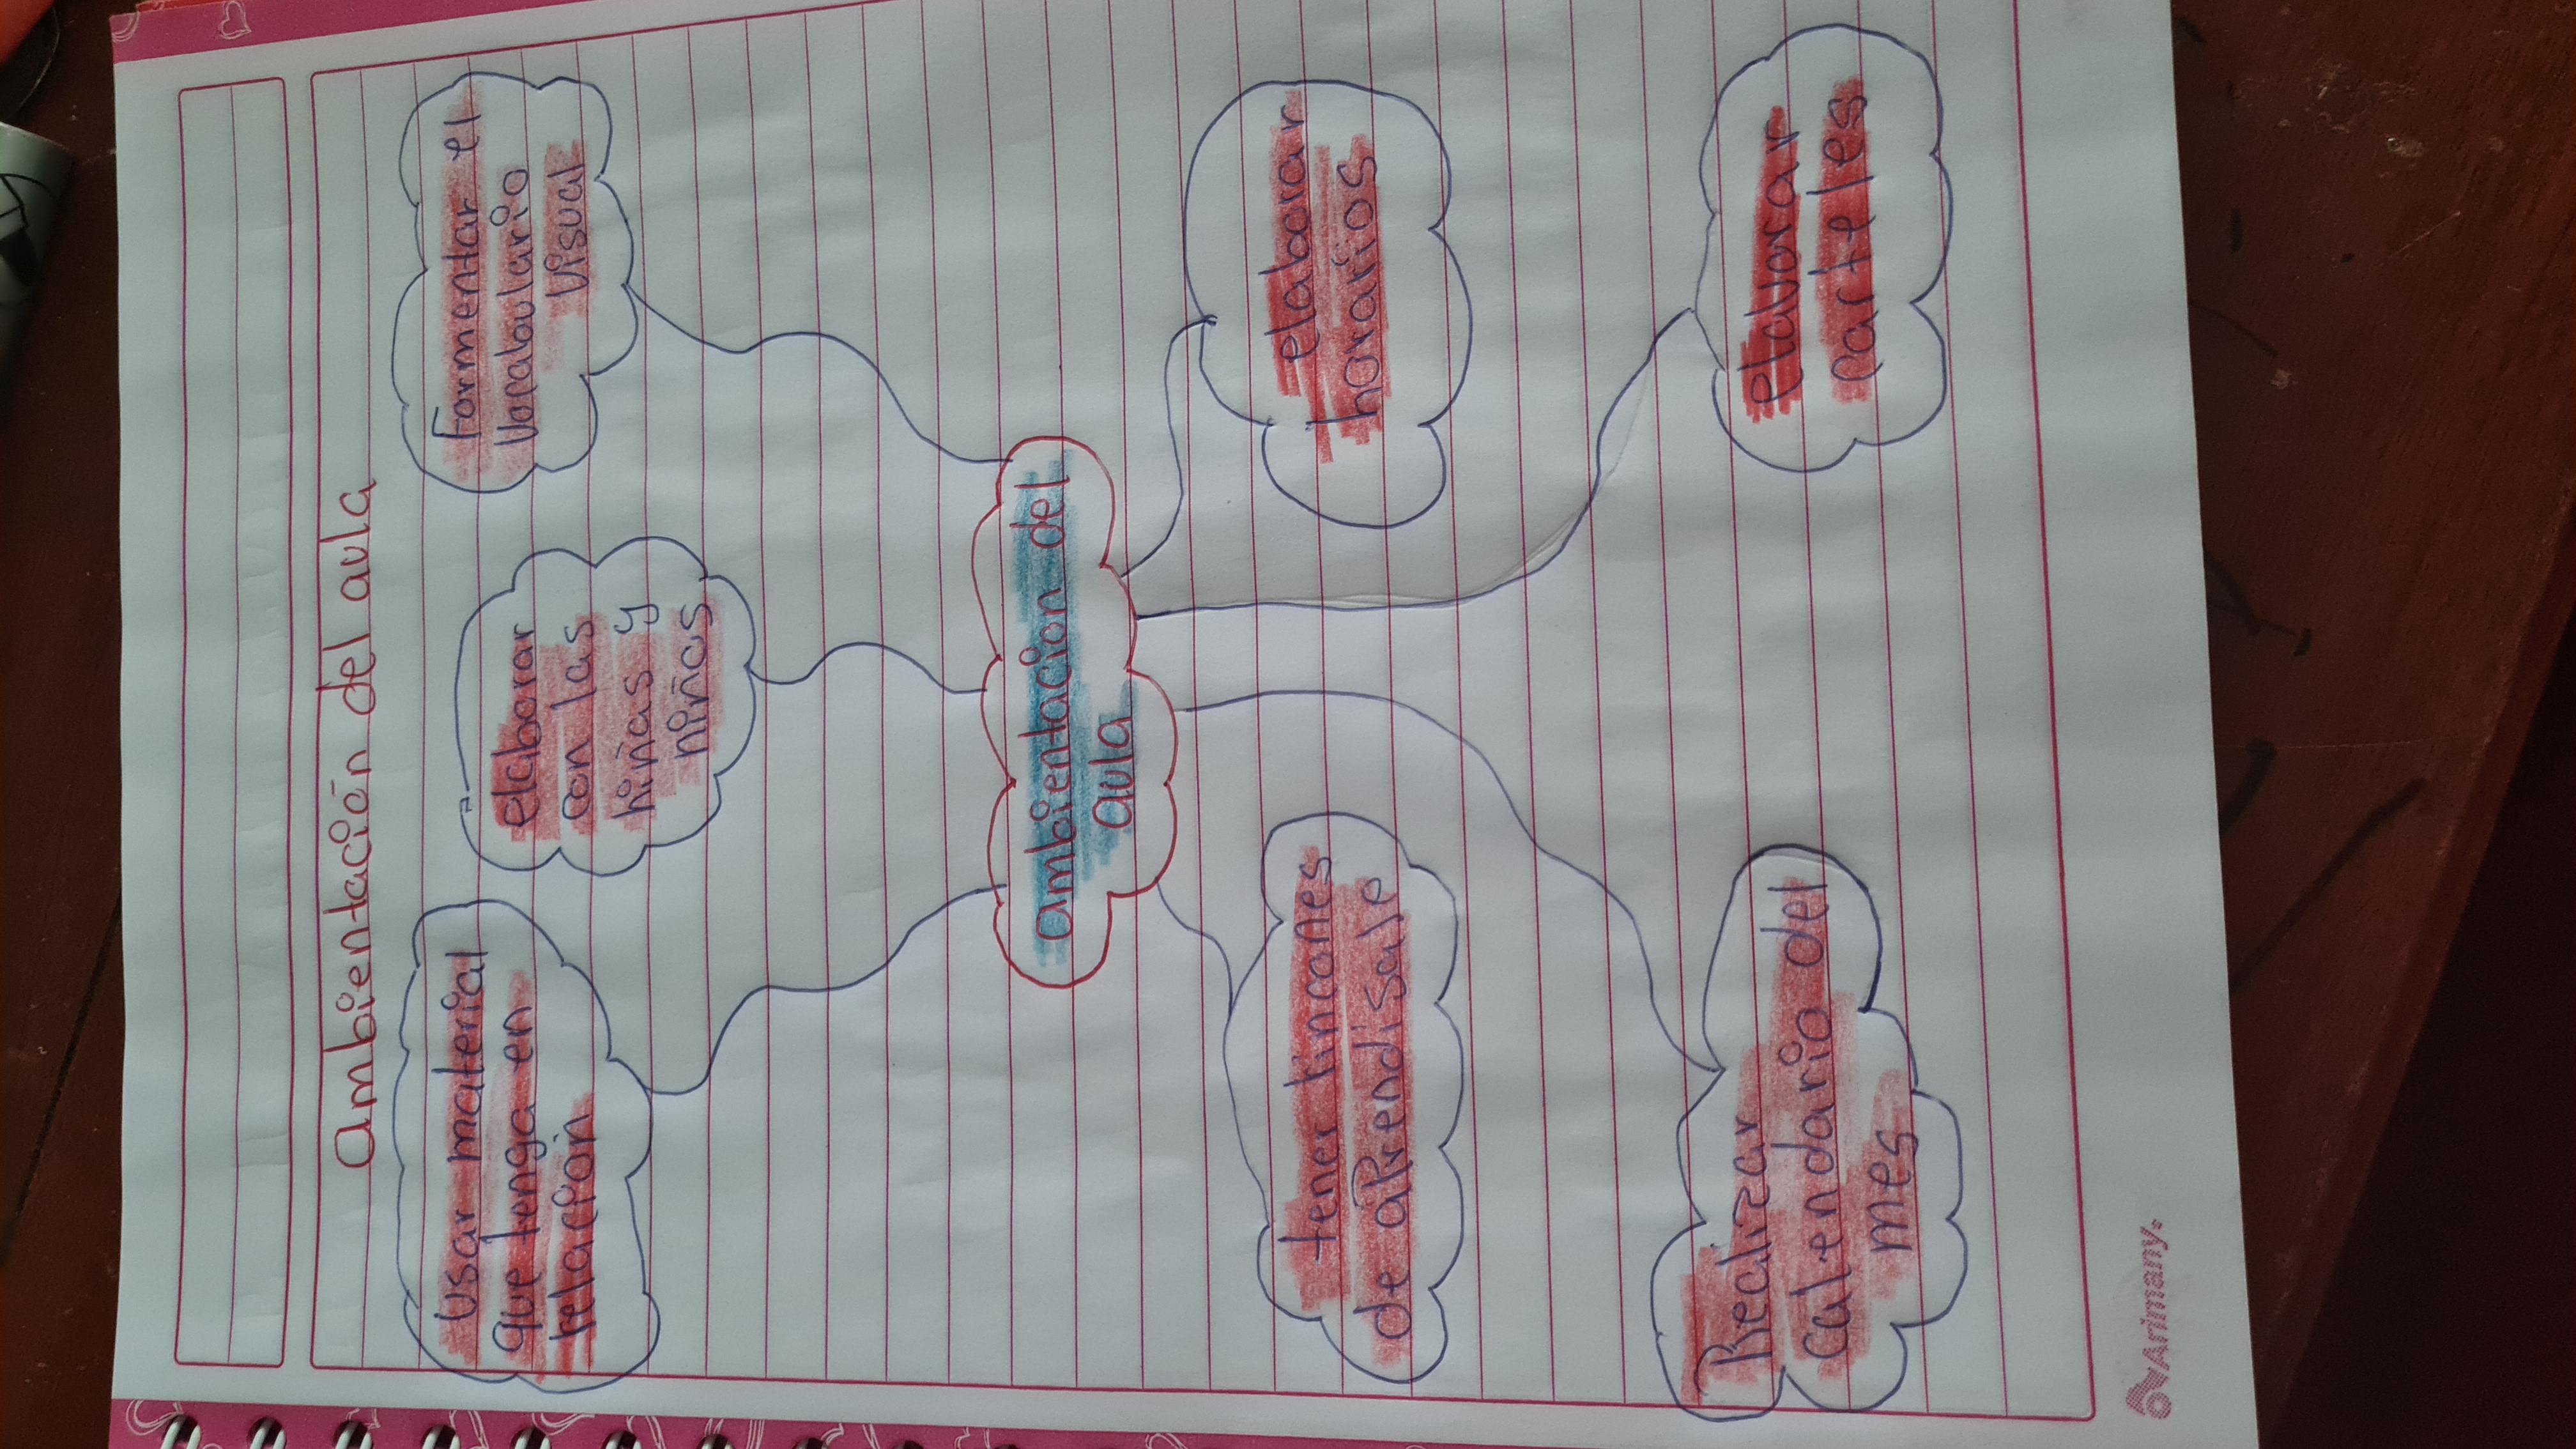 Ambientación del aula
Usar material
que tenga en
relación
elaborar
con las
niñas y
niños
Formentar el
Vocabulario
Visual
ambientacion del
aula
tener rincones
de aprendisaje
elaborar
horarios
Realizar
Calendario del
mes
elavorar
carteles
Arimany